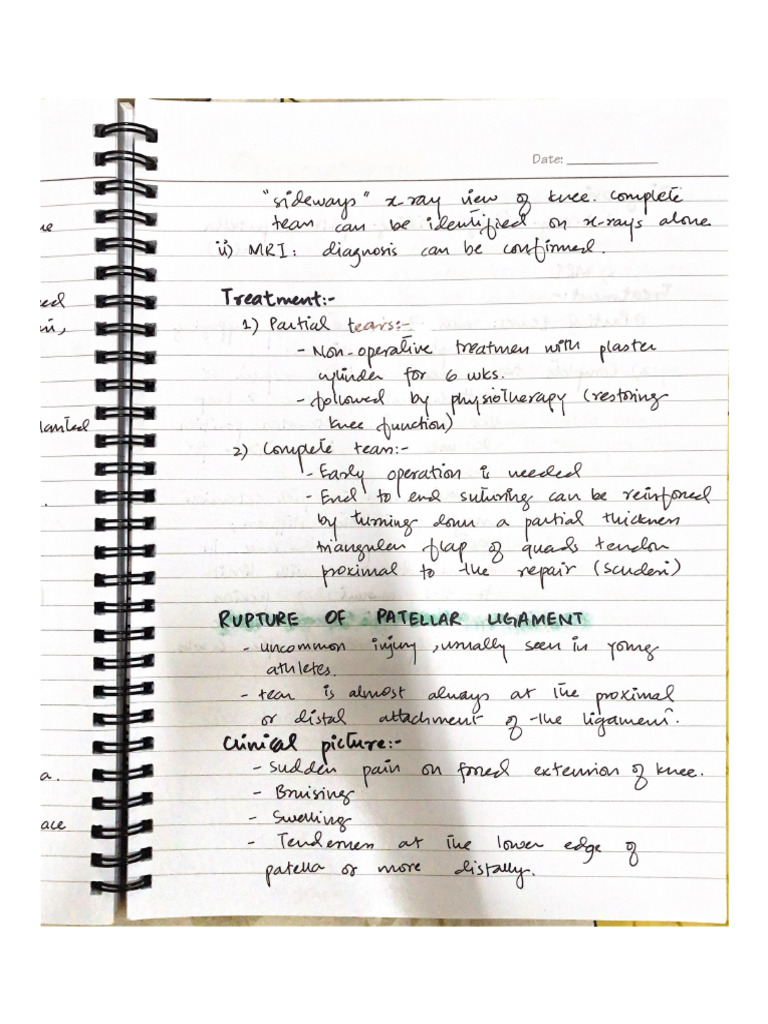 Date:
"sideways" x-ray view of knee. Complete
tear can be identified on x-rays alone
ii) MRI: diagnosis can be confirmed.
Treatment:-
1) Partial tears:-
- Non-operative treatmen with plaster
cylinder for 6 wks.
- followed by physiotherapy (restoring
knee function)
2) Complete tear:-
- Early operation is needed
- End to end suturing can be reinforced
by turning down a partial thickness
triangular flap of quads tendon
proximal to the repair (Scuderi)
RUPTURE OF PATELLAR LIGAMENT
- uncommon injury, usually seen in young
athletes.
- tear is almost always at the proximal
or distal attachment of the ligament.
Clinical picture:-
- Sudden pain on forced extension of knee.
- Bruising
- Swelling
- Tenderness at the lower edge of
patella or more distally.
a.
ace